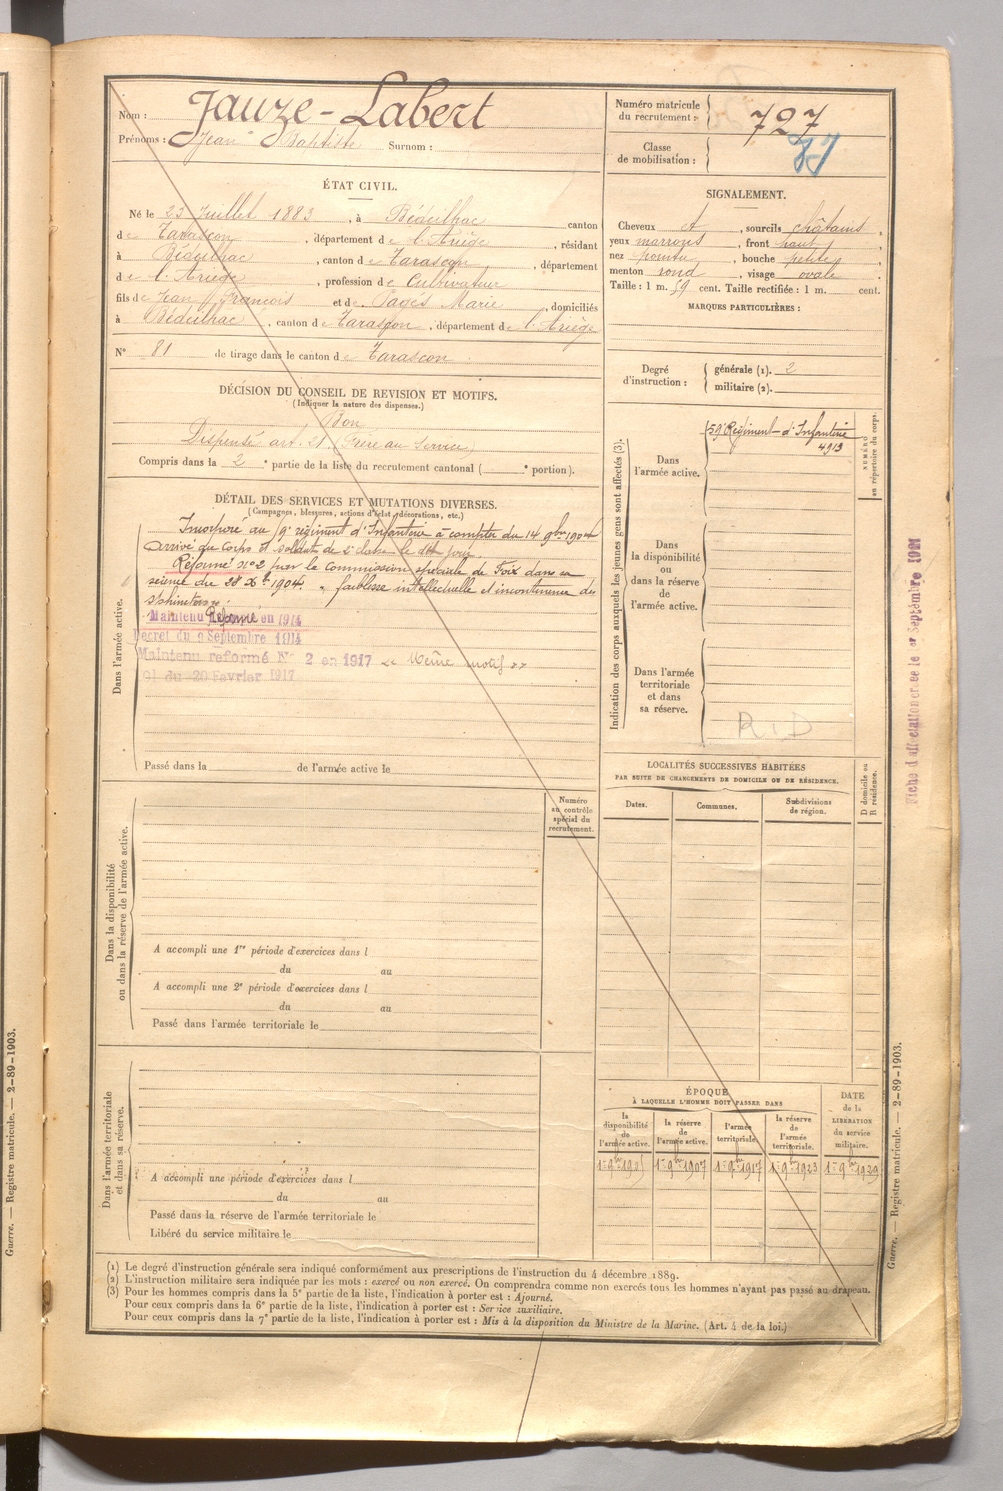 Nom : Jauze-Labert
Prénoms : Jean Baptiste Surnom :
Numéro matricule du recrutement : 727
Classe de mobilisation :
ÉTAT CIVIL.
Né le 23 Juillet 1883, à Bédeilhac canton
de Tarascon, département de l'Ariège, résidant
à Bédeilhac, canton de Tarascon, département
de l'Ariège, profession de Cultivateur
fils de Jean François et de Pagès Marie, domiciliés
à Bédeilhac, canton de Tarascon, département de l'Ariège
N° 81 de tirage dans le canton de Tarascon
SIGNALEMENT.
Cheveux et, sourcils châtains,
yeux marrons, front haut,
nez pointu, bouche petite,
menton rond, visage ovale
Taille : 1 m. 59 cent. Taille rectifiée : 1 m. cent.
MARQUES PARTICULIÈRES :
Degré d'instruction : générale (1). 2
militaire (2).
DÉCISION DU CONSEIL DE REVISION ET MOTIFS.
(Indiquer la nature des dispenses.)
Bon
Dispensé art. 21. Frère au Service
Compris dans la 2e partie de la liste du recrutement cantonal ( e portion).
DÉTAIL DES SERVICES ET MUTATIONS DIVERSES.
(Campagnes, blessures, actions d'éclat, décorations, etc.)
Dans l'armée active.
Incorporé au 59e régiment d'Infanterie à compter du 14 9bre 1904
Arrivé au corps et soldat de 2e classe le dit jour.
Réformé n° 2 par la commission spéciale de Foix dans sa
séance du 28 Xbre 1904. faiblesse intellectuelle et incontinence des
sphincters.
Maintenu Réformé en 1914
Décret du 9 Septembre 1914
Maintenu réformé N° 2 en 1917 le Même motif
Cl du 20 Février 1917
Passé dans la de l'armée active le
Indication des corps auxquels les jeunes gens sont affectés (3).
Dans l'armée active.
59e Régiment d'Infanterie
4913
NUMÉRO au répertoire du corps.
Dans la disponibilité ou dans la réserve de l'armée active.
Dans l'armée territoriale et dans sa réserve.
R.D
Fiche d'affectation créée le 1er Septembre 1921
LOCALITÉS SUCCESSIVES HABITÉES
PAR SUITE DE CHANGEMENTS DE DOMICILE OU DE RÉSIDENCE.
Dates.
Communes.
Subdivisions de région.
D domicile ou R résidence.
Dans la disponibilité ou dans la réserve de l'armée active.
Numéro au contrôle spécial du recrutement.
A accompli une 1re période d'exercices dans l
du au
A accompli une 2e période d'exercices dans l
du au
Passé dans l'armée territoriale le
Dans l'armée territoriale et dans sa réserve.
A accompli une période d'exercices dans l
du au
Passé dans la réserve de l'armée territoriale le
Libéré du service militaire le
ÉPOQUE
À LAQUELLE L'HOMME DOIT PASSER DANS
la disponibilité de l'armée active.
la réserve de l'armée active.
l'armée territoriale.
la réserve de l'armée territoriale.
DATE de la LIBÉRATION du service militaire.
1er 9bre 1907
1er 9bre 1917
1er 9bre 1923
1er 9bre 1929
(1) Le degré d'instruction générale sera indiqué conformément aux prescriptions de l'instruction du 4 décembre 1889.
(2) L'instruction militaire sera indiquée par les mots : exercé ou non exercé. On comprendra comme non exercés tous les hommes n'ayant pas passé au drapeau.
(3) Pour les hommes compris dans la 5e partie de la liste, l'indication à porter est : Ajourné.
Pour ceux compris dans la 6e partie de la liste, l'indication à porter est : Service auxiliaire.
Pour ceux compris dans la 7e partie de la liste, l'indication à porter est : Mis à la disposition du Ministre de la Marine. (Art. 4 de la loi.)
Guerre. — Registre matricule. — 2-89-1903.
Guerre. — Registre matricule. — 2-89-1903.